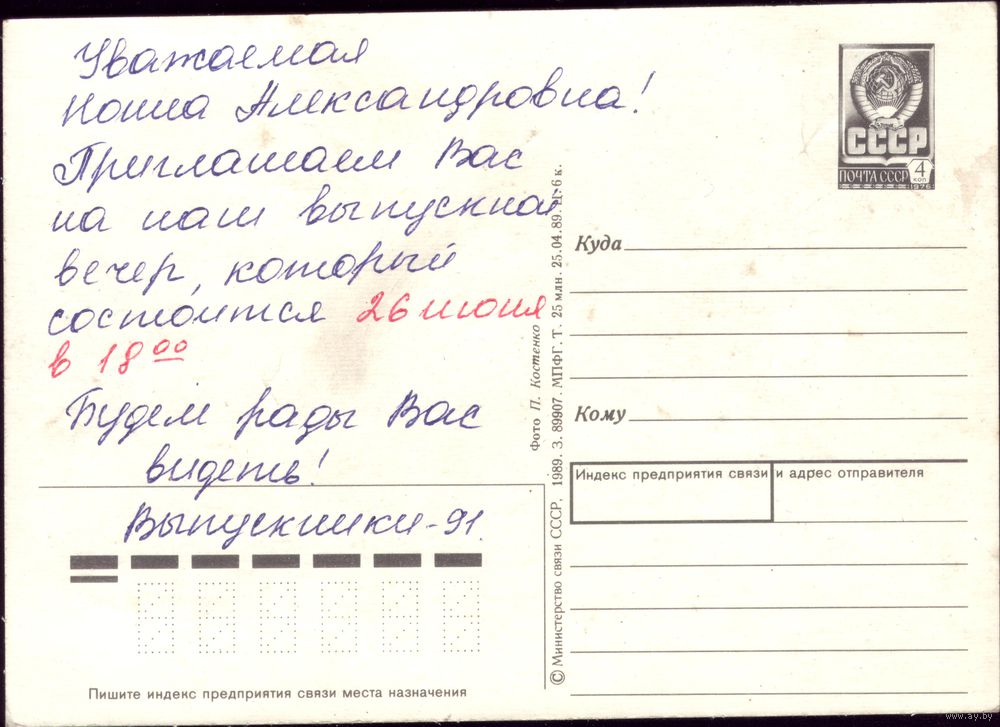 Уважаемая
Нонна Александровна!
Приглашаем Вас
на наш выпускной
вечер, который
состоится 26 июня
в 18 00
Будем рады Вас
видеть!
Выпускники-91.
Пишите индекс предприятия связи места назначения
© Министерство связи СССР, 1989. З. 89907. МПФГ. Т. 25 млн. 25.04.89. Ц. 6 к.
Фото П. Костенко
СССР
ПОЧТА СССР 4 коп
1976
Куда
Кому
Индекс предприятия связи и адрес отправителя
www.ay.by